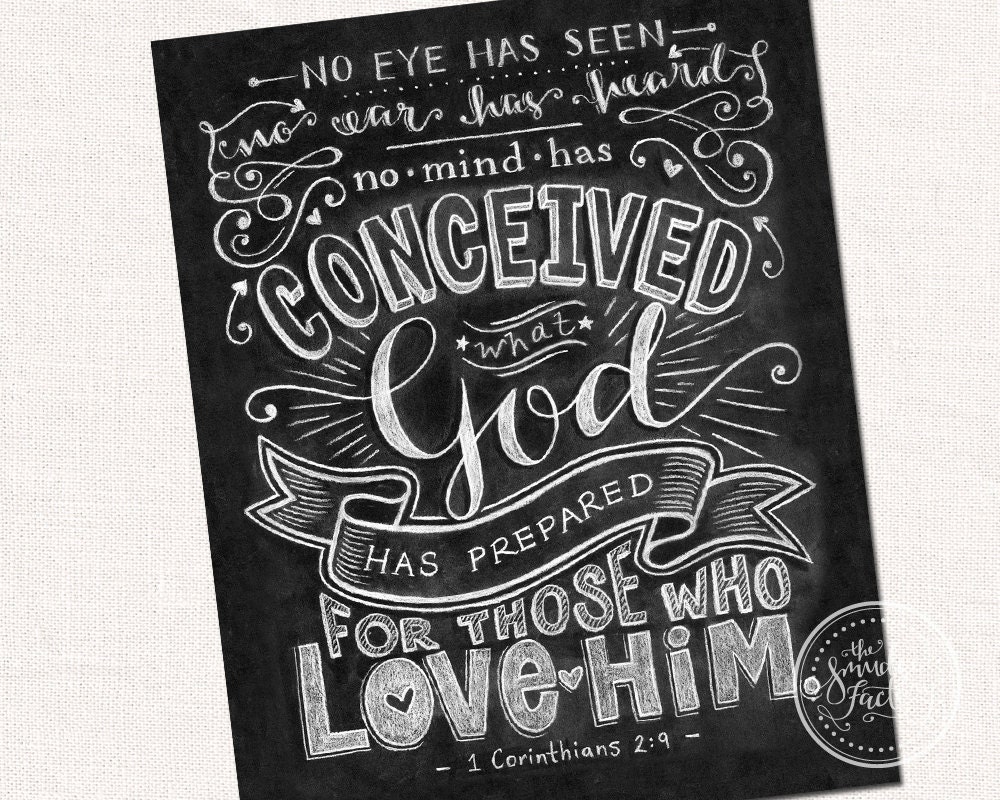 NO EYE HAS SEEN
no ear has heard
no · mind · has
CONCEIVED
what
God
HAS PREPARED
FOR THOSE WHO
LOVE HiM
- 1 Corinthians 2:9 -
the